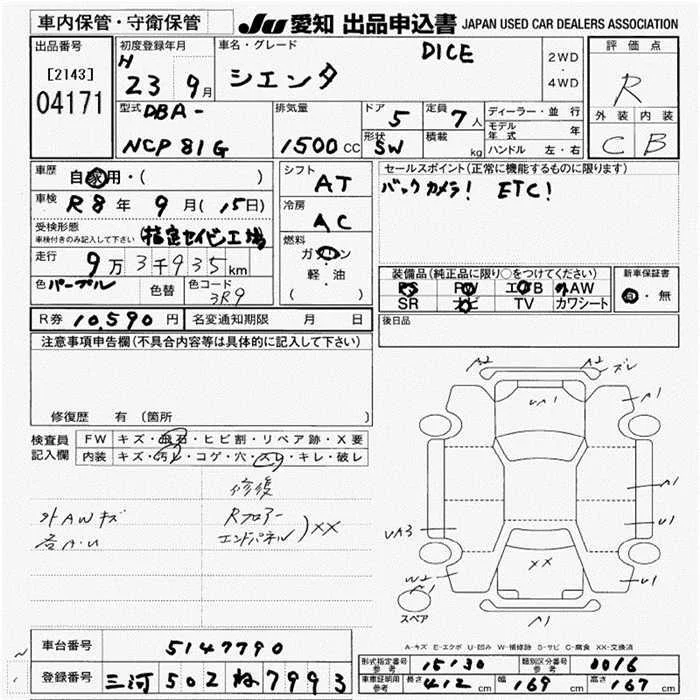 車内保管・守衛保管 JU 愛知 出品申込書 JAPAN USED CAR DEALERS ASSOCIATION
出品番号 初度登録年月 車名・グレード DICE 2WD・4WD 評価点
[2143] H 23 9月 シエンタ R
04171 外装 内装
型式 DBA- 排気量 ドア 5 定員 7人 ディーラー・並行 C B
NCP81G 1500CC 形状 SW 積載 kg モデル年式 年
ハンドル 左・右
車歴 自家用・( ) シフト AT セールスポイント(正常に機能するものに限ります)
車検 R8年 9月(15日) 冷房 AC バックカメラ! ETC!
受検形態 車検付きのみ記入して下さい (指定セイビ工場) 燃料 ガソリン
走行 9万3千935km 軽・油
色 パープル 色替 色コード 3R9 ( )
装備品(純正品に限り○をつけてください) 新車保証書
PS PW エアB AW 有・無
SR ナビ TV カワシート
R券 10,590円 名変通知期限 月 日 後日品
注意事項申告欄(不具合内容等は具体的に記入して下さい)
修復歴 有(箇所
検査員記入欄 FW キズ・飛石・ヒビ割・リペア跡・X要
内装 キズ・汚レ・コゲ・穴・スレ・キレ・破レ
修復
外AWキズ Rフロアー
各A・U エンドパネル )XX
A2 A2 ズレ
UA1 A1
A1
U1
UA3
XX
W2 A1 U1
スペア A1
A-キズ E-エクボ U-凹み W-補修跡 S-サビ C-腐食 XX-交換済
車台番号 5147790
登録番号 三河 502 ね 7993
形式指定番号 参考 15130 類別区分番号 参考 0016
車庫証明用 参考 長さ 412cm 幅 169cm 高さ 167cm